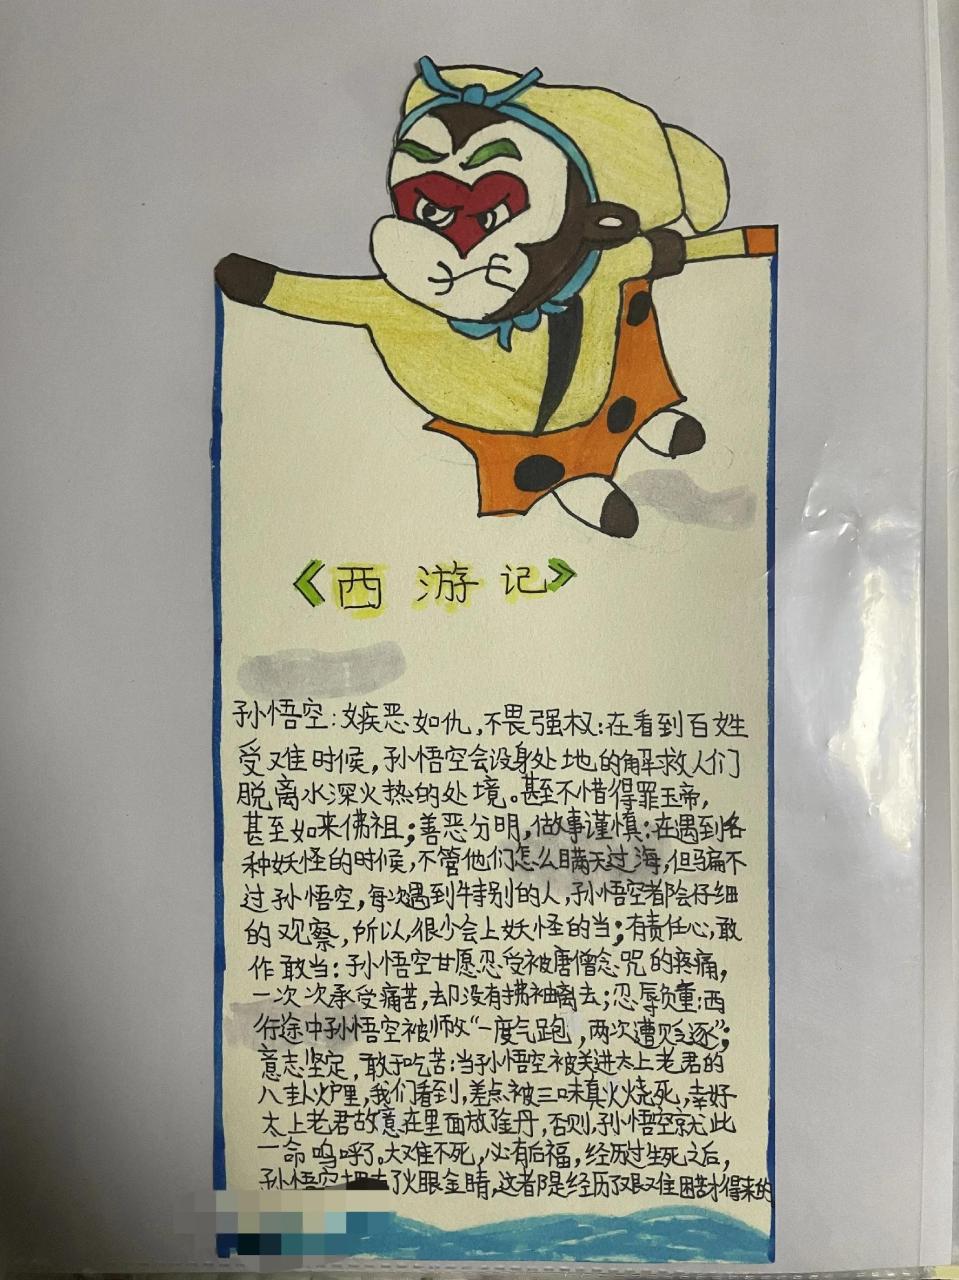 《西游记》
孙悟空：嫉恶如仇，不畏强权：在看到百姓
受难时候，孙悟空会设身处地的解救人们
脱离水深火热的处境。甚至不惜得罪玉帝，
甚至如来佛祖；善恶分明，做事谨慎：在遇到各
种妖怪的时候，不管他们怎么瞒天过海，但骗不
过孙悟空，每次遇到特别的人，孙悟空都会仔细
的观察，所以，很少会上妖怪的当；有责任心，敢
作敢当：孙悟空甘愿忍受被唐僧念咒的疼痛，
一次次承受痛苦，却没有拂袖离去；忍辱负重：西
行途中孙悟空被师父“一度气跑，两次遭贬逐”；
意志坚定，敢于吃苦：当孙悟空被关进太上老君的
八卦炉里，我们看到，差点被三味真火烧死，幸好
太上老君故意在里面放了丹，否则，孙悟空就此
一命呜呼了。大难不死，必有后福，经历过生死之后，
孙悟空拥有了火眼金睛，这都是经历了艰难困苦才得来的